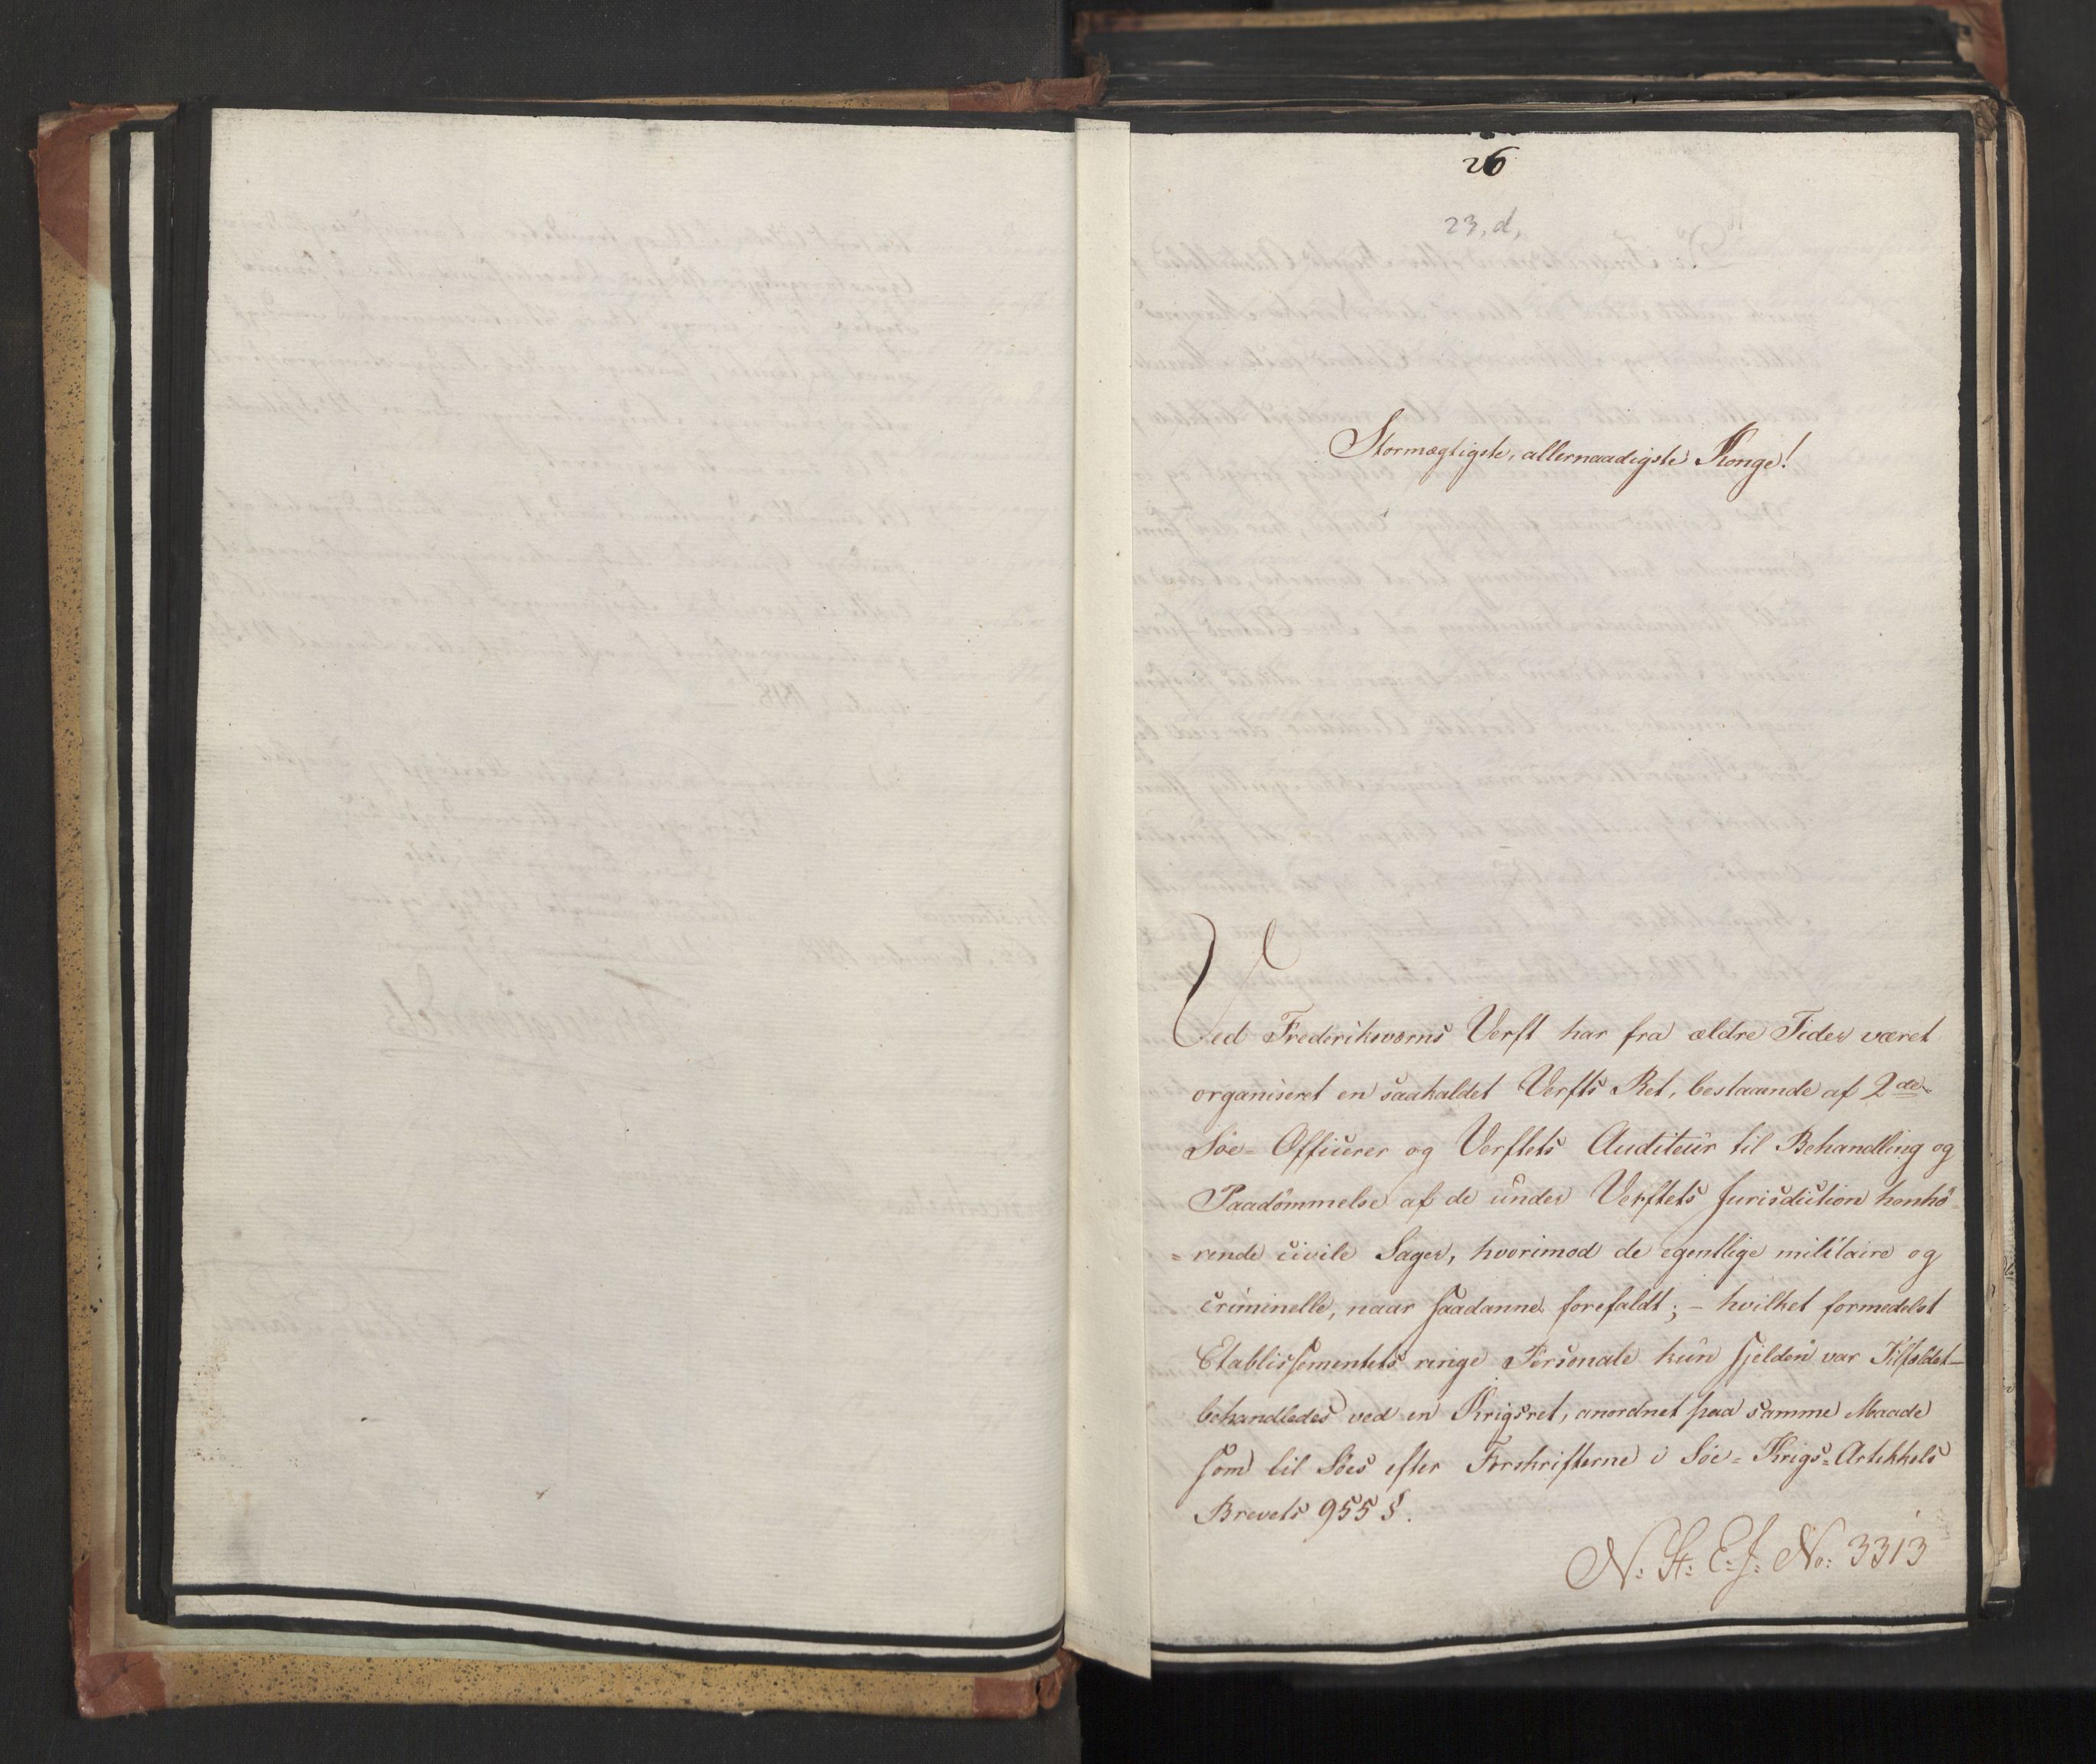 26
23, d,
Stormægtigste, allernaadigste Konge!
Ved Frederiksværns Verft har fra ældre Tider været
organiseret en saakaldet Verfts Ret, bestaaende af 2de
Söe- Officerer og Verftets Auditeur til Behandling og
Paadömmelse af de under Verftets Jurisdiction henhö-
=rende civile Sager, hvorimod de egentlige militaire og
criminelle, naar saadanne forefaldt; - hvilket formedelst
Etablissementets ringe Personale kun sjelden var Tilfældet-
behandledes ved en Krigsret, anordnet paa samme Maade
som til Söes efter Forskrifterne i Söe=Krigs=Artikkels
Brevets 955 §.
N: St: E: J: No: 3313